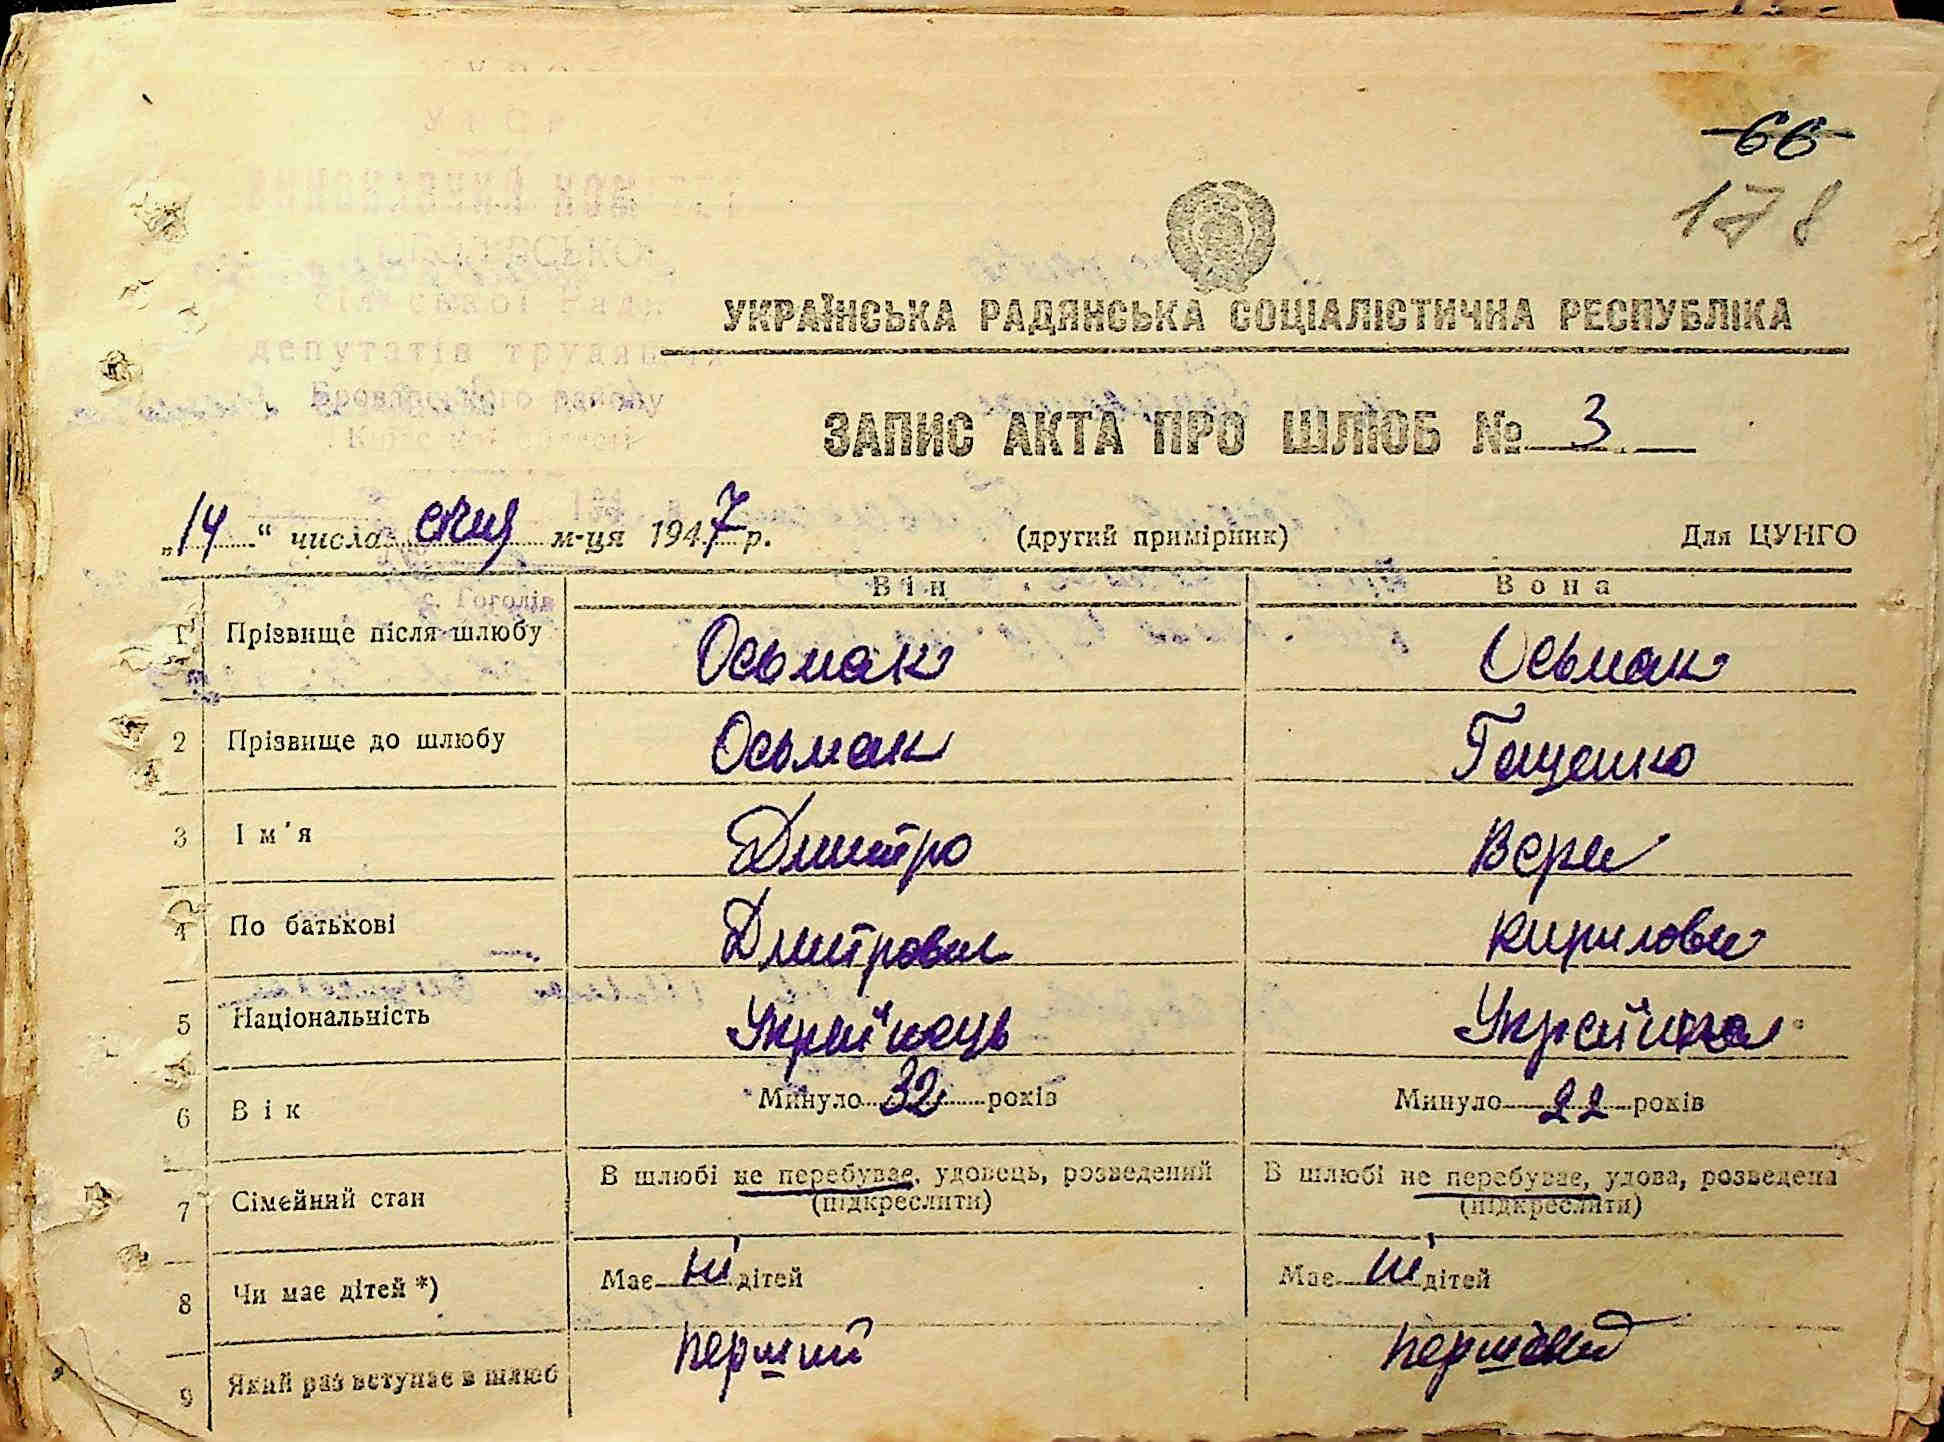 66
178
УРСР
ВИКОНАВЧИЙ КОМІТЕТ
депутатів трудящих
Броварського району
Київської області
с. Гоголів
УКРАЇНСЬКА РАДЯНСЬКА СОЦІАЛІСТИЧНА РЕСПУБЛІКА
ЗАПИС АКТА ПРО ШЛЮБ № 3
„14“ числа січня м-ця 1947 р. (другий примірник) Для ЦУНГО
Він Вона
1 Прізвище після шлюбу Осьмак Осьмак
2 Прізвище до шлюбу Осьмак Гещенко
3 Ім'я Дмитро Вера
4 По батькові Дмитрович Кирилова
5 Національність Українець Українка
6 Вік Минуло 32 років Минуло 22 років
7 Сімейний стан В шлюбі не перебуває, удовець, розведений (підкреслити) В шлюбі не перебуває, удова, розведена (підкреслити)
8 Чи має дітей *) Має ні дітей Має ні дітей
9 Який раз вступає в шлюб перший перший